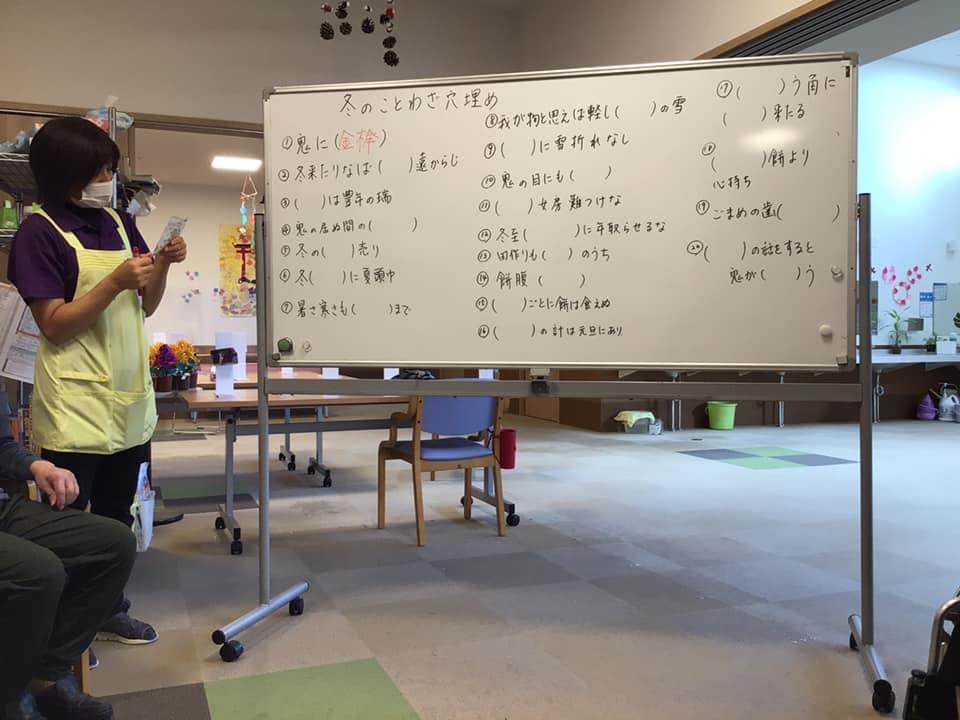 冬のことわざ穴埋め
①鬼に(金棒)
②冬来たりなば(　　)遠からじ
③(　　)は豊年の瑞
④鬼の居ぬ間の(　　)
⑤冬の(　　)売り
⑥冬(　　)に夏頭巾
⑦暑さ寒さも(　　)まで
⑧我が物と思えば軽し(　　)の雪
⑨(　　)に雪折れなし
⑩鬼の目にも(　　)
⑪(　　)女房難つけな
⑫冬至(　　)に年取らせるな
⑬田作りも(　　)のうち
⑭餅腹(　　)
⑮(　　)ごとに餅は食えぬ
⑯(　　)の計は元旦にあり
⑰(　　)う角に
(　　)来たる
⑱
(　　)餅より
心持ち
⑲ごまめの歯(　　)
⑳(　　)の話をすると
鬼が(　　)う